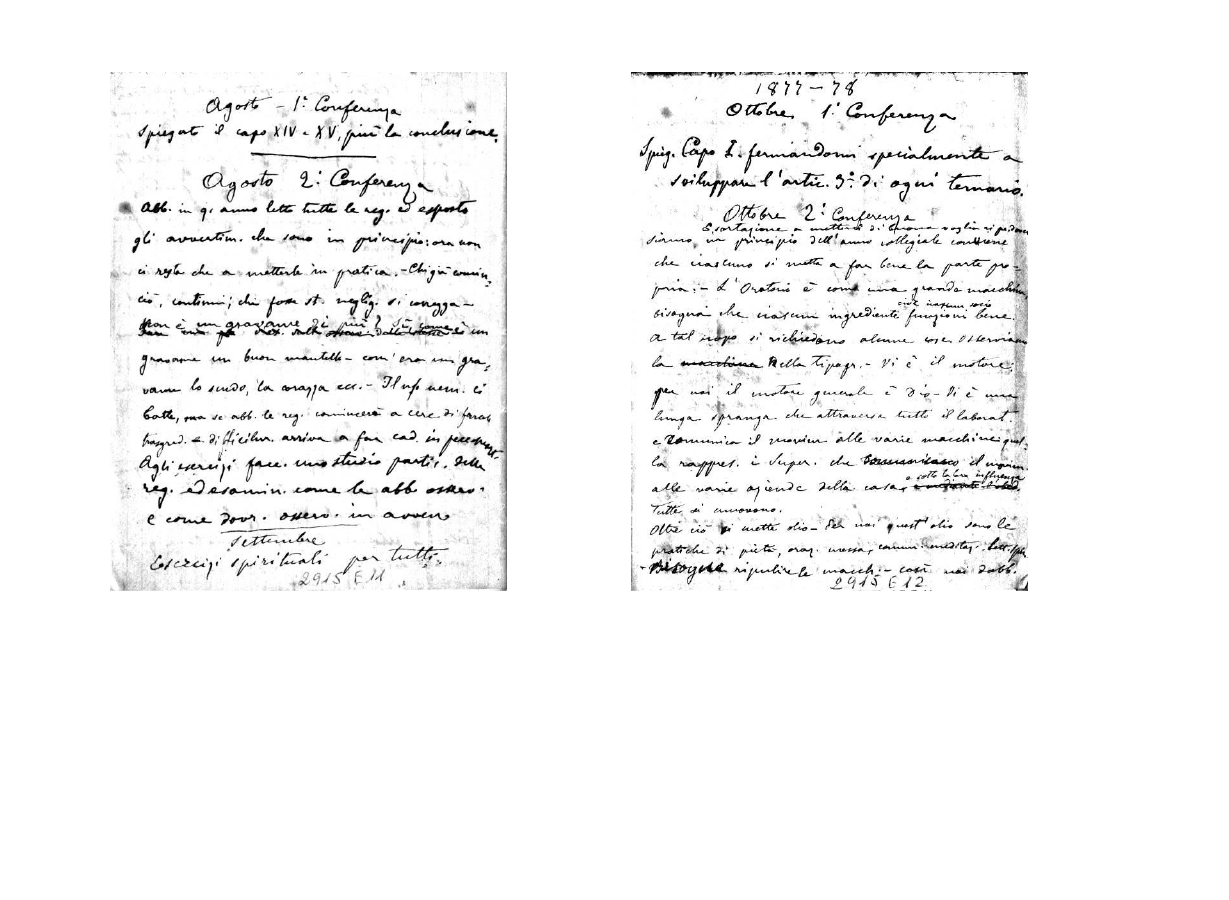 Agosto - 1ª Conferenza
Spiegato il capo XIV e XV, più la conclusione.
Agosto 2ª Conferenza
Abb. in q. anno letto tutte le reg. ed esposto
gli avvertim. che sono in principio: ora non
ci resta che a metterle in pratica. - Chi già comin-
ciò, continui; chi fosse st. neglig. si corregga -
Non è un gravame di più? Sì, come è un
gravame un buon mantello - com'era un gra-
vame lo scudo, la corazza ecc. - Il nem. ci
batte, ma se abb. le reg. comincerà a
trasgred. e difficilm. arriva a far cad. in
Agli esercizi facc. uno studio partic. delle
reg. ed esamin. come le abb. osserv.
e come dovr. osserv. in avven.
Settembre
Esercizi spirituali per tutti.
2915 E 11
1877-78
Ottobre 1ª Conferenza
Spieg. Capo I. fermandomi specialmente a
sviluppare l'artic. 3º di ogni ternario.
Ottobre 2ª Conferenza
Esortazione a mettersi di buona voglia
siamo in principio dell'anno collegiale conviene
che ciascuno si metta a far bene la parte pro-
pria. - L'Oratorio è come una grande macchina
cioè ciascun socio
bisogna che ciascun ingrediente funzioni bene.
A tal scopo si richiedono alcune cose. Osserviamo
la macchina Nella tipogr. - Vi è il motore,
per noi il motore generale è Dio - Vi è una
lunga spranga che attraversa tutti il laborat.
e comunica il movim. alle varie macchine:
la rappres. i Super. che comunicano il movim.
e sotto la loro influenza
alle varie aziende della casa,
tutte si muovono.
Oltre ciò si mette olio - Per noi quest'olio sono le
pratiche di pietà, oraz. messa, comun. meditaz.
Bisogna ripulire le macch. - così noi dobb.
2915 E 12